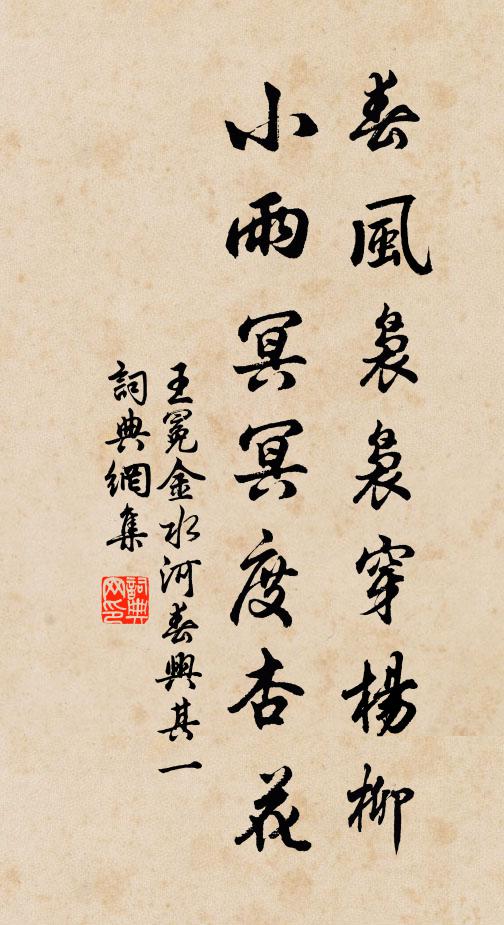 春風裊裊穿楊柳
小雨冥冥度杏花
王冕金水河春興其一
詞典網集
詞典網印